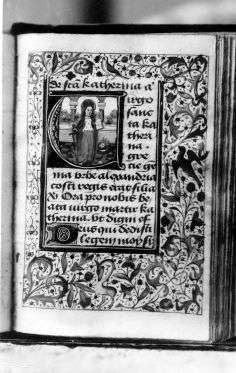 De sca katherina a
Virgo
sanc
ta ka
theri
na
gre
cie ge
ma vrbe alexandria
costi regis erat filia
V Ora pro nobis be
ata virgo martir ka
therina. Vt digni ef
Deus qui dedisti
legem moysi